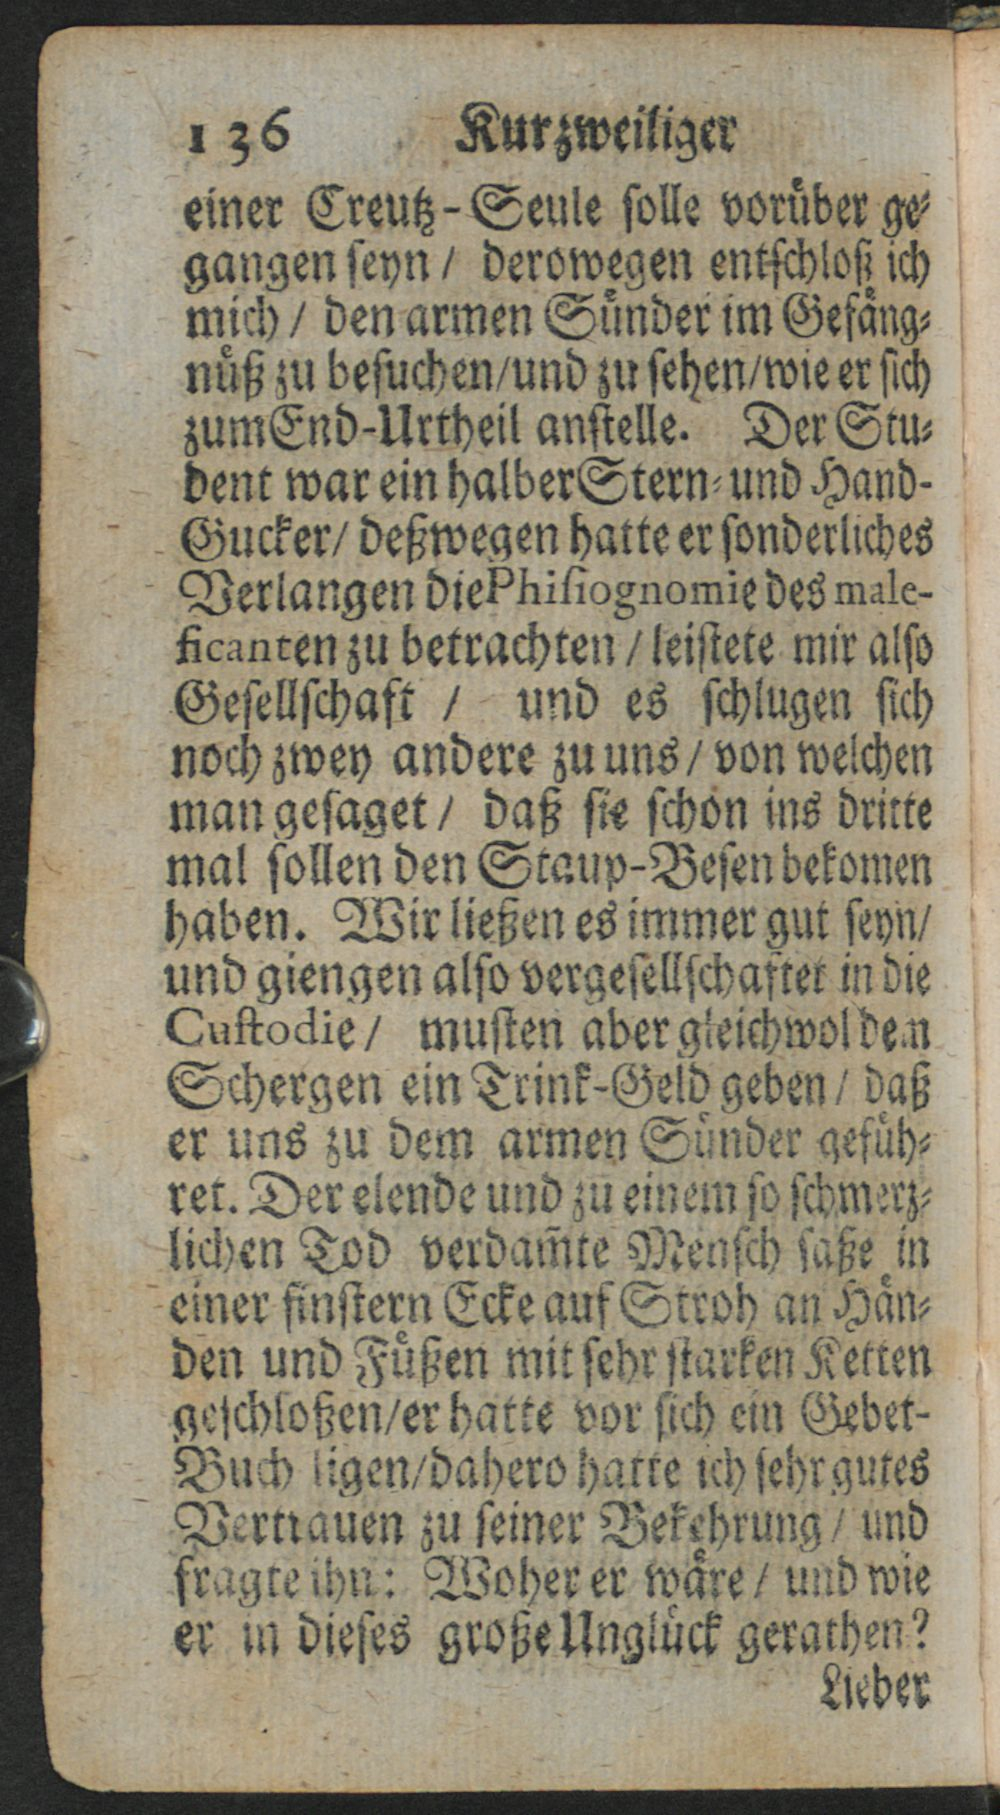 136 Kurzweiliger
einer Creutz-Seule solle vorüber ge-
gangen seyn / derowegen entschloß ich
mich / den armen Sünder im Gefäng-
nüß zu besuchen/und zu sehen/wie er sich
zum End-Urtheil anstelle. Der Stu-
dent war ein halber Stern- und Hand-
Gucker/ deßwegen hatte er sonderliches
Verlangen die Phisiognomie des male-
ficanten zu betrachten / leistete mir also
Gesellschaft / und es schlugen sich
noch zwey andere zu uns / von welchen
man gesaget / daß sie schon ins dritte
mal sollen den Staup-Besen bekomen
haben. Wir ließen es immer gut seyn/
und giengen also vergesellschaftet in die
Custodie / musten aber gleichwol dem
Schergen ein Trink-Geld geben / daß
er uns zu dem armen Sünder gefüh-
ret. Der elende und zu einem so schmerz-
lichen Tod verdam̃te Mensch saße in
einer finstern Ecke auf Stroh an Hän-
den und Füßen mit sehr starken Ketten
geschloßen/er hatte vor sich ein Gebet-
Buch ligen/dahero hatte ich sehr gutes
Vertrauen zu seiner Bekehrung / und
fragte ihn: Woher er wäre / und wie
er in dieses große Unglück gerathen?
Lieber